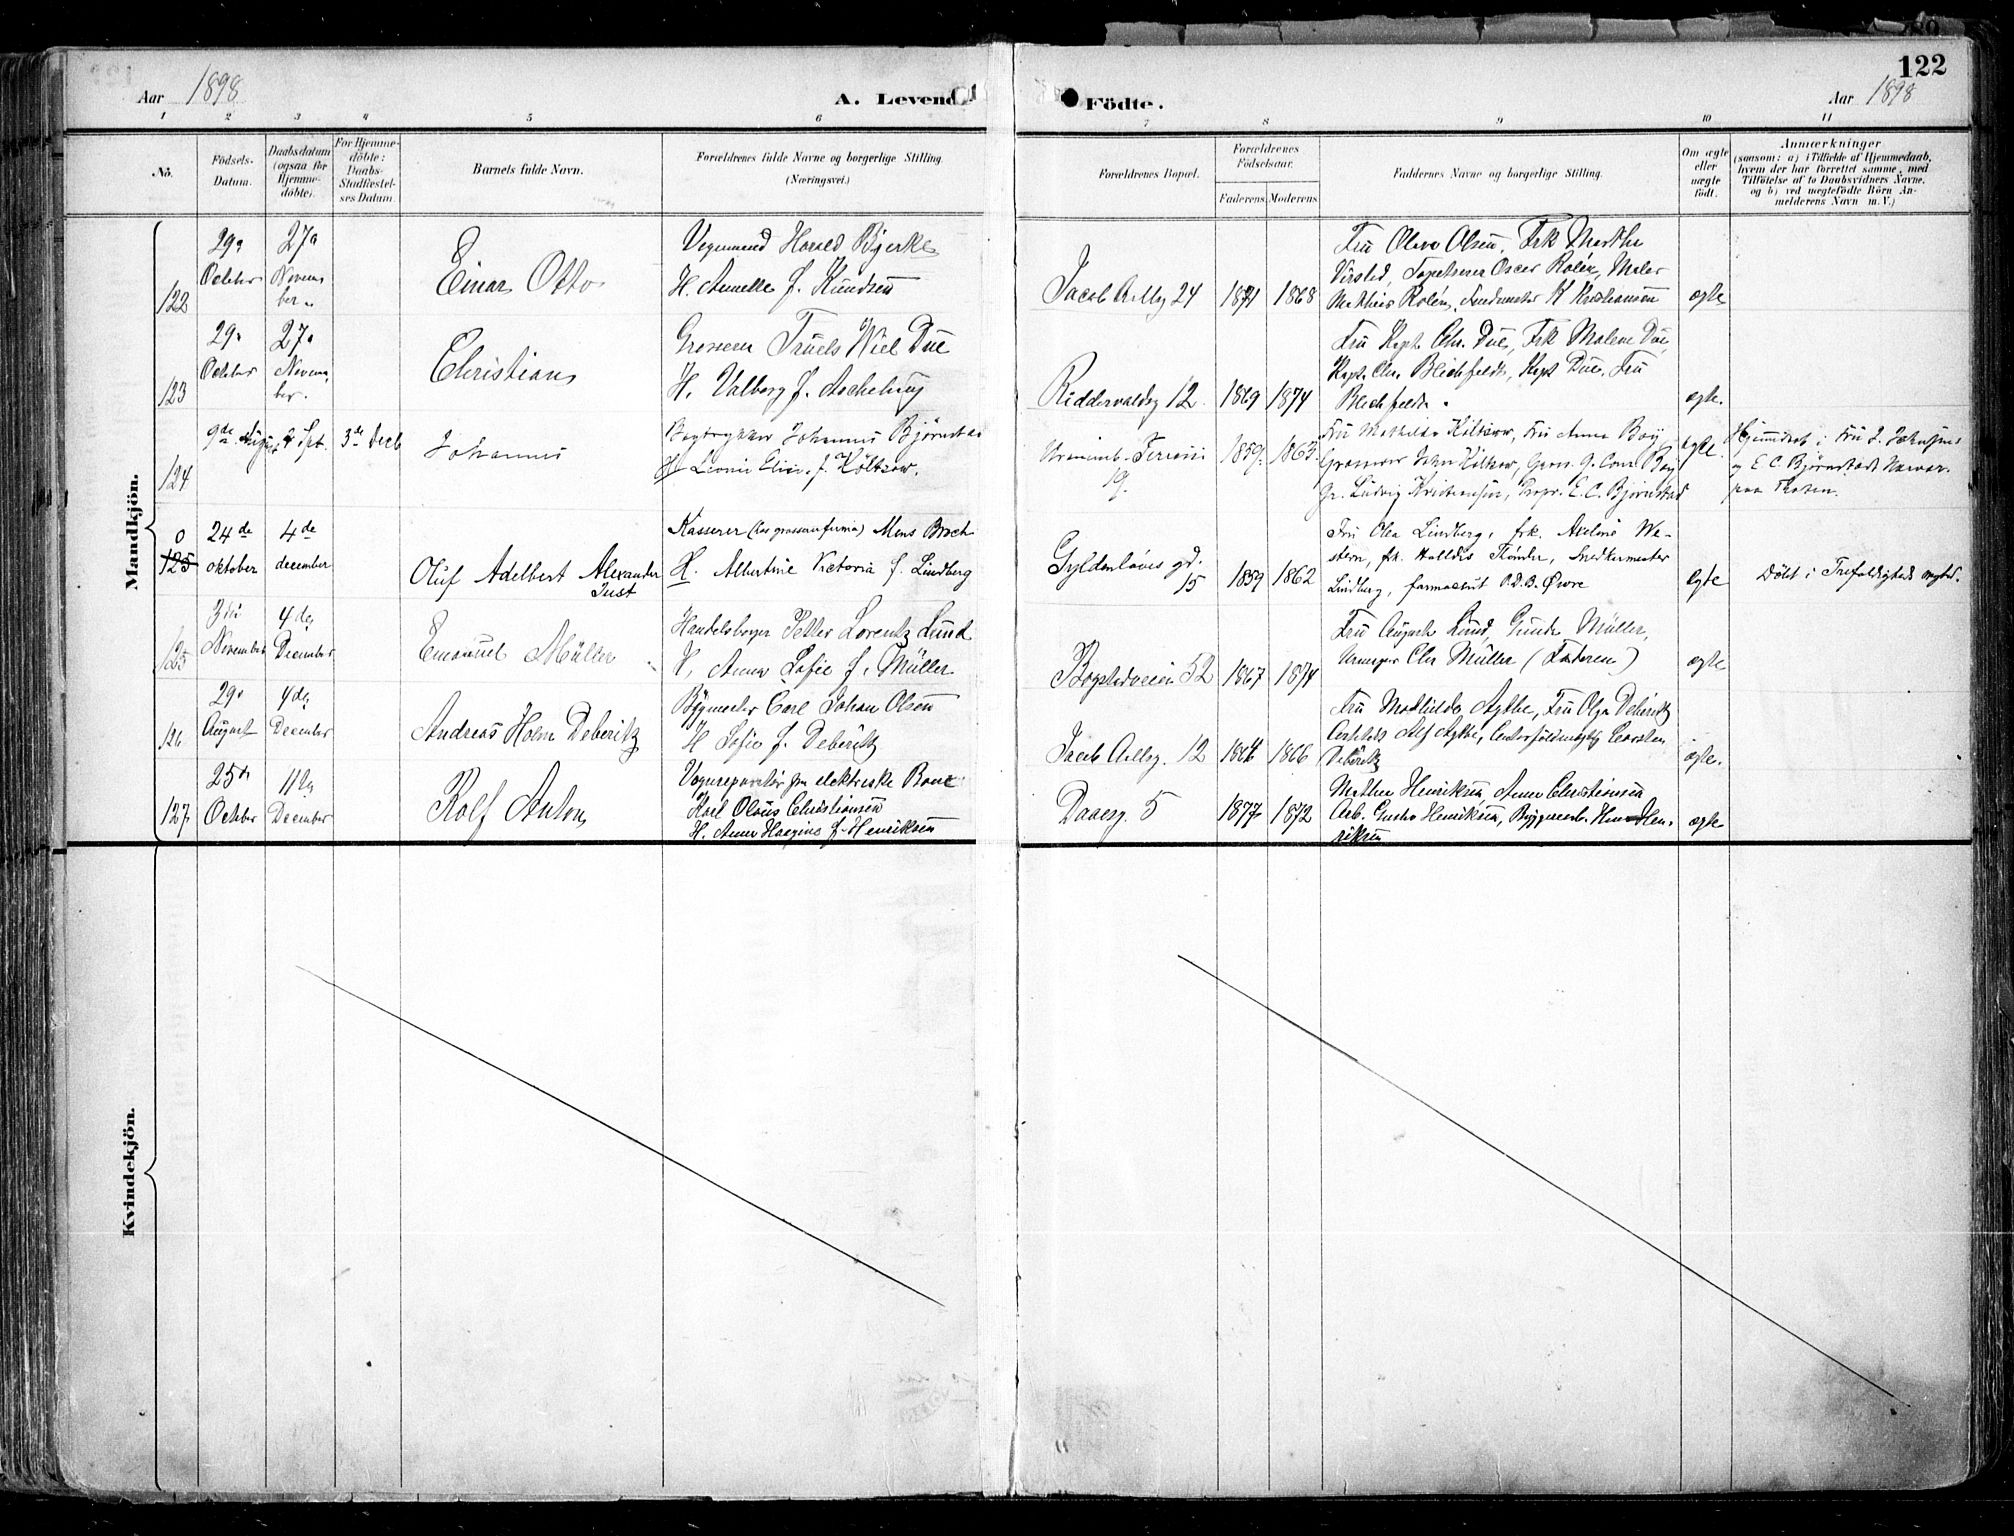 122
Aar 1898
A. Levende
Födte.
Aar 1898
1 2 3 4 5 6 7 8 9 10 11
No.
Födsels-
Datum.
Daabsdatum
(ogsaa for
Hjemme-
döbte).
For Hjemme-
döbte:
Daabs-
Stadfæstel-
ses Datum.
Barnets fulde Navn.
Forældrenes fulde Navne og borgerlige Stilling.
(Næringsvei.)
Forældrenes Bopæl.
Forældrenes
Födselsaar.
Faderens. Moderens.
Faddernes Navne og borgerlige Stilling.
Om ægte
eller
uægte
födt.
Anmærkninger
(saasom: a) i Tilfælde af Hjemmedaab,
hvem der har forrettet samme, med
Tilföielse af to Daabsvidners Navne,
og b) ved uegtefödte Börn An-
melderens Navn m. V.)
Mandkjön.
122
29.
October
27.
Novem
ber.
Einar Otto
Vognmand Harald Bjerke
H. Amelle f. Knudsen
Jacob Aallsg 24
1871 1868
Fru Olava Olsen, Frk Marthe
Virsted, Tapetserer Oscar Rolén, Maler
Mathias Rolén, K Kristiansen
ægte
123
29.
October
27.
Novem
ber.
Christian
Grosserer Truels Wiel Due
H. Valborg f. Aschehoug
Riddervoldsg 12.
1869 1874
Fru Kapt. Chr. Due, Frk Malene Due,
Kapt. Chr. Blichfeldt, Kapt Due, Fru
Blichfeldt.
ægte.
124
9de August
2 Spt.
3de Decb
Johannes
Bogtrykker Johannes Björnstad
H. Leonie Elise f. Költzow.
19.
1859. 1863.
Fru Mathilde Költzow, Fru Anna Boy
Grosserer John Költzow, Gross. G. Conr. Boy
Gr. Ludvig Kristensen, Propr. E. C. Björnstad
ægte.
Hjemmedöbt i Fru J. Johnsens
og E. C. Björnstads Nærvær.
paa Thoten.
0
125
24de
oktober
4de
december
Oluf Adelbert Alexander
Just
Kasserer (hos grossererfirma) Mons Broch
H. Albertine Victoria f. Lindberg
Gyldenløves gd.
15
1859 1862
Fru Olea Lindberg, frk. Aveline We-
stern, frk. Halldis Thönder, Snedkermester
Lindberg, farmaceut O.D.B. Øwre
ægte
Döbt i Trefoldigheds meghd.
125
3die
November
4de
December
Emanuel Müller
Handelsborger Petter Lorentz Lund
H. Anna Sofie f. Müller
Bogstadveien 52
1867 1874
Fru Augusta Lund, Gunda Müller,
Chr Müller (Faderen)
ægte
126
29.
August
4de
December
Andreas Holm Deberitz
Bygmester Carl Johan Olsen
H Sofie f. Deberitz
Jacob Aallsg. 12
1864 1866
Fru Mathilde Aythe, Fru Olga Deberitz
Alf Aythe, Contorfuldmægtig Carsten
Deberitz
ægte.
127.
25de
October
11te
December
Rolf Anton
Vognreparatør paa elektriske Bane
Karl Olaus Christiansen
H. Anna Hasgine f. Henriksen
Daaesg. 5
1877 1872
Mathea Henriksen, Anna Christiansen
Arb. Gustav Henriksen, Byggearb. Hen-
riksen
ægte
Kvindekjön.